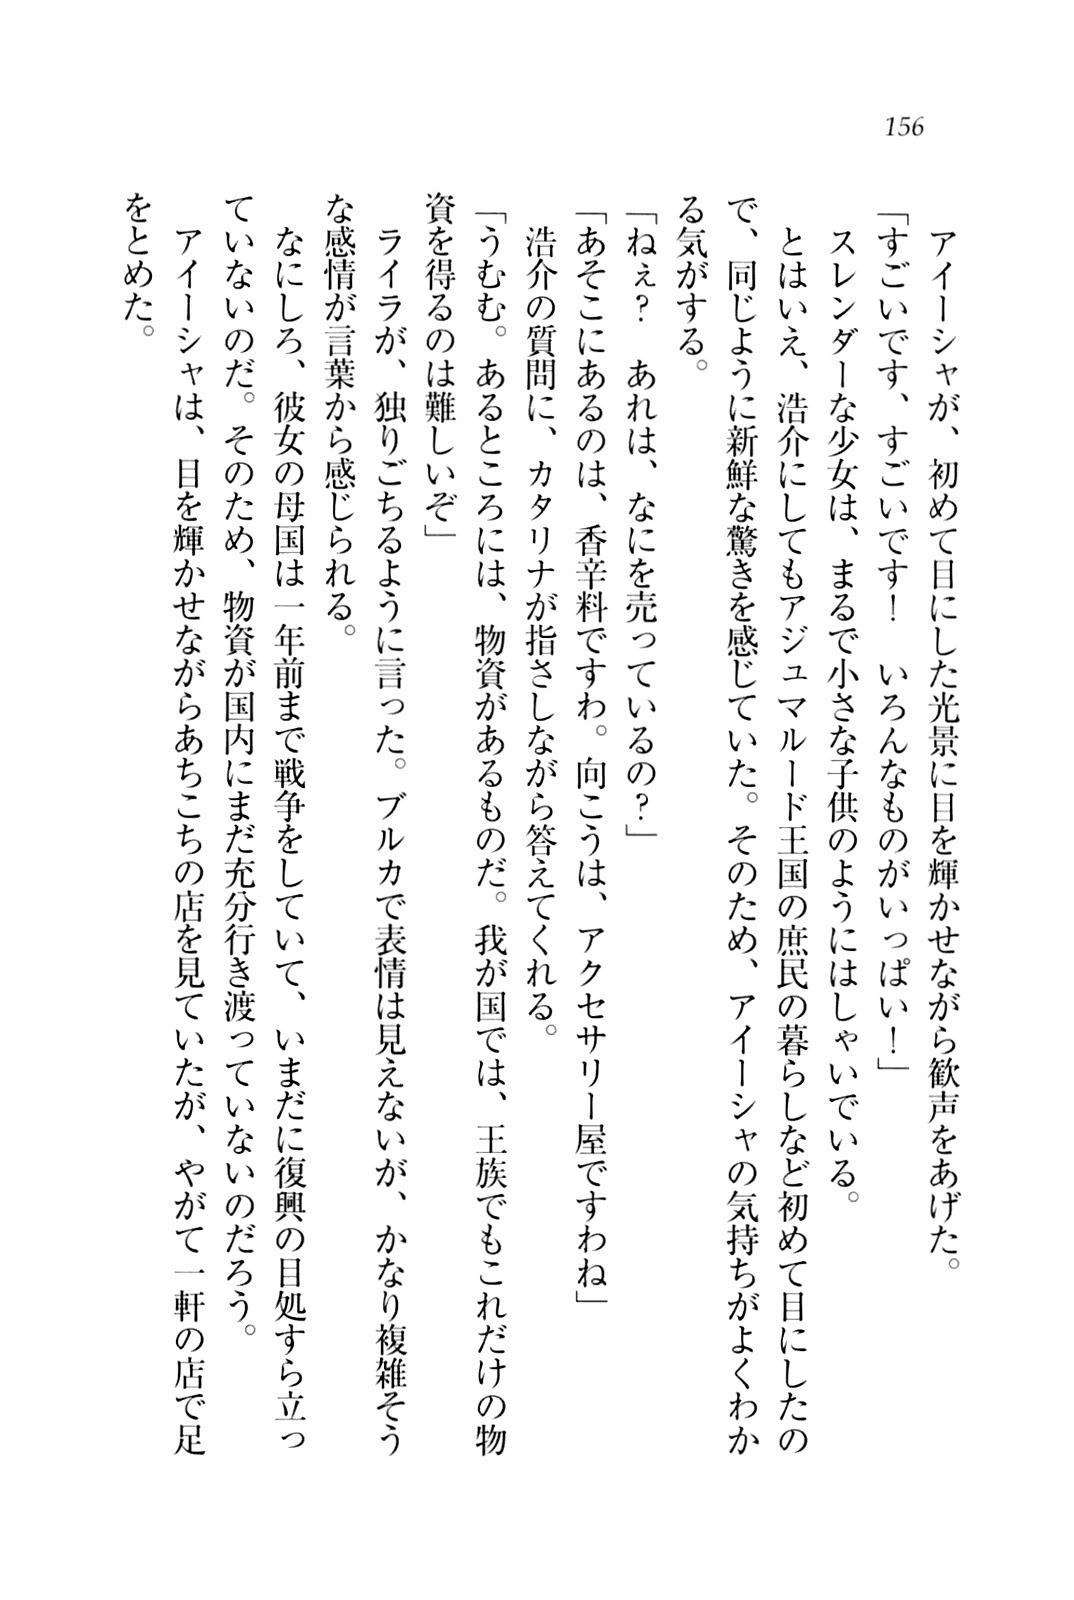 156
アイーシャが、初めて目にした光景に目を輝かせながら歓声をあげた。
「すごいです、すごいです！　いろんなものがいっぱい！」
スレンダーな少女は、まるで小さな子供のようにはしゃいでいる。
とはいえ、浩介にしてもアジュマルード王国の庶民の暮らしなど初めて目にしたの
で、同じように新鮮な驚きを感じていた。そのため、アイーシャの気持ちがよくわか
る気がする。
「ねぇ？　あれは、なにを売っているの？」
「あそこにあるのは、香辛料ですわ。向こうは、アクセサリー屋ですわね」
浩介の質問に、カタリナが指さしながら答えてくれる。
「うむむ。あるところには、物資があるものだ。我が国では、王族でもこれだけの物
資を得るのは難しいぞ」
ライラが、独りごちるように言った。ブルカで表情は見えないが、かなり複雑そう
な感情が言葉から感じられる。
なにしろ、彼女の母国は一年前まで戦争をしていて、いまだに復興の目処すら立っ
ていないのだ。そのため、物資が国内にまだ充分行き渡っていないのだろう。
アイーシャは、目を輝かせながらあちこちの店を見ていたが、やがて一軒の店で足
をとめた。